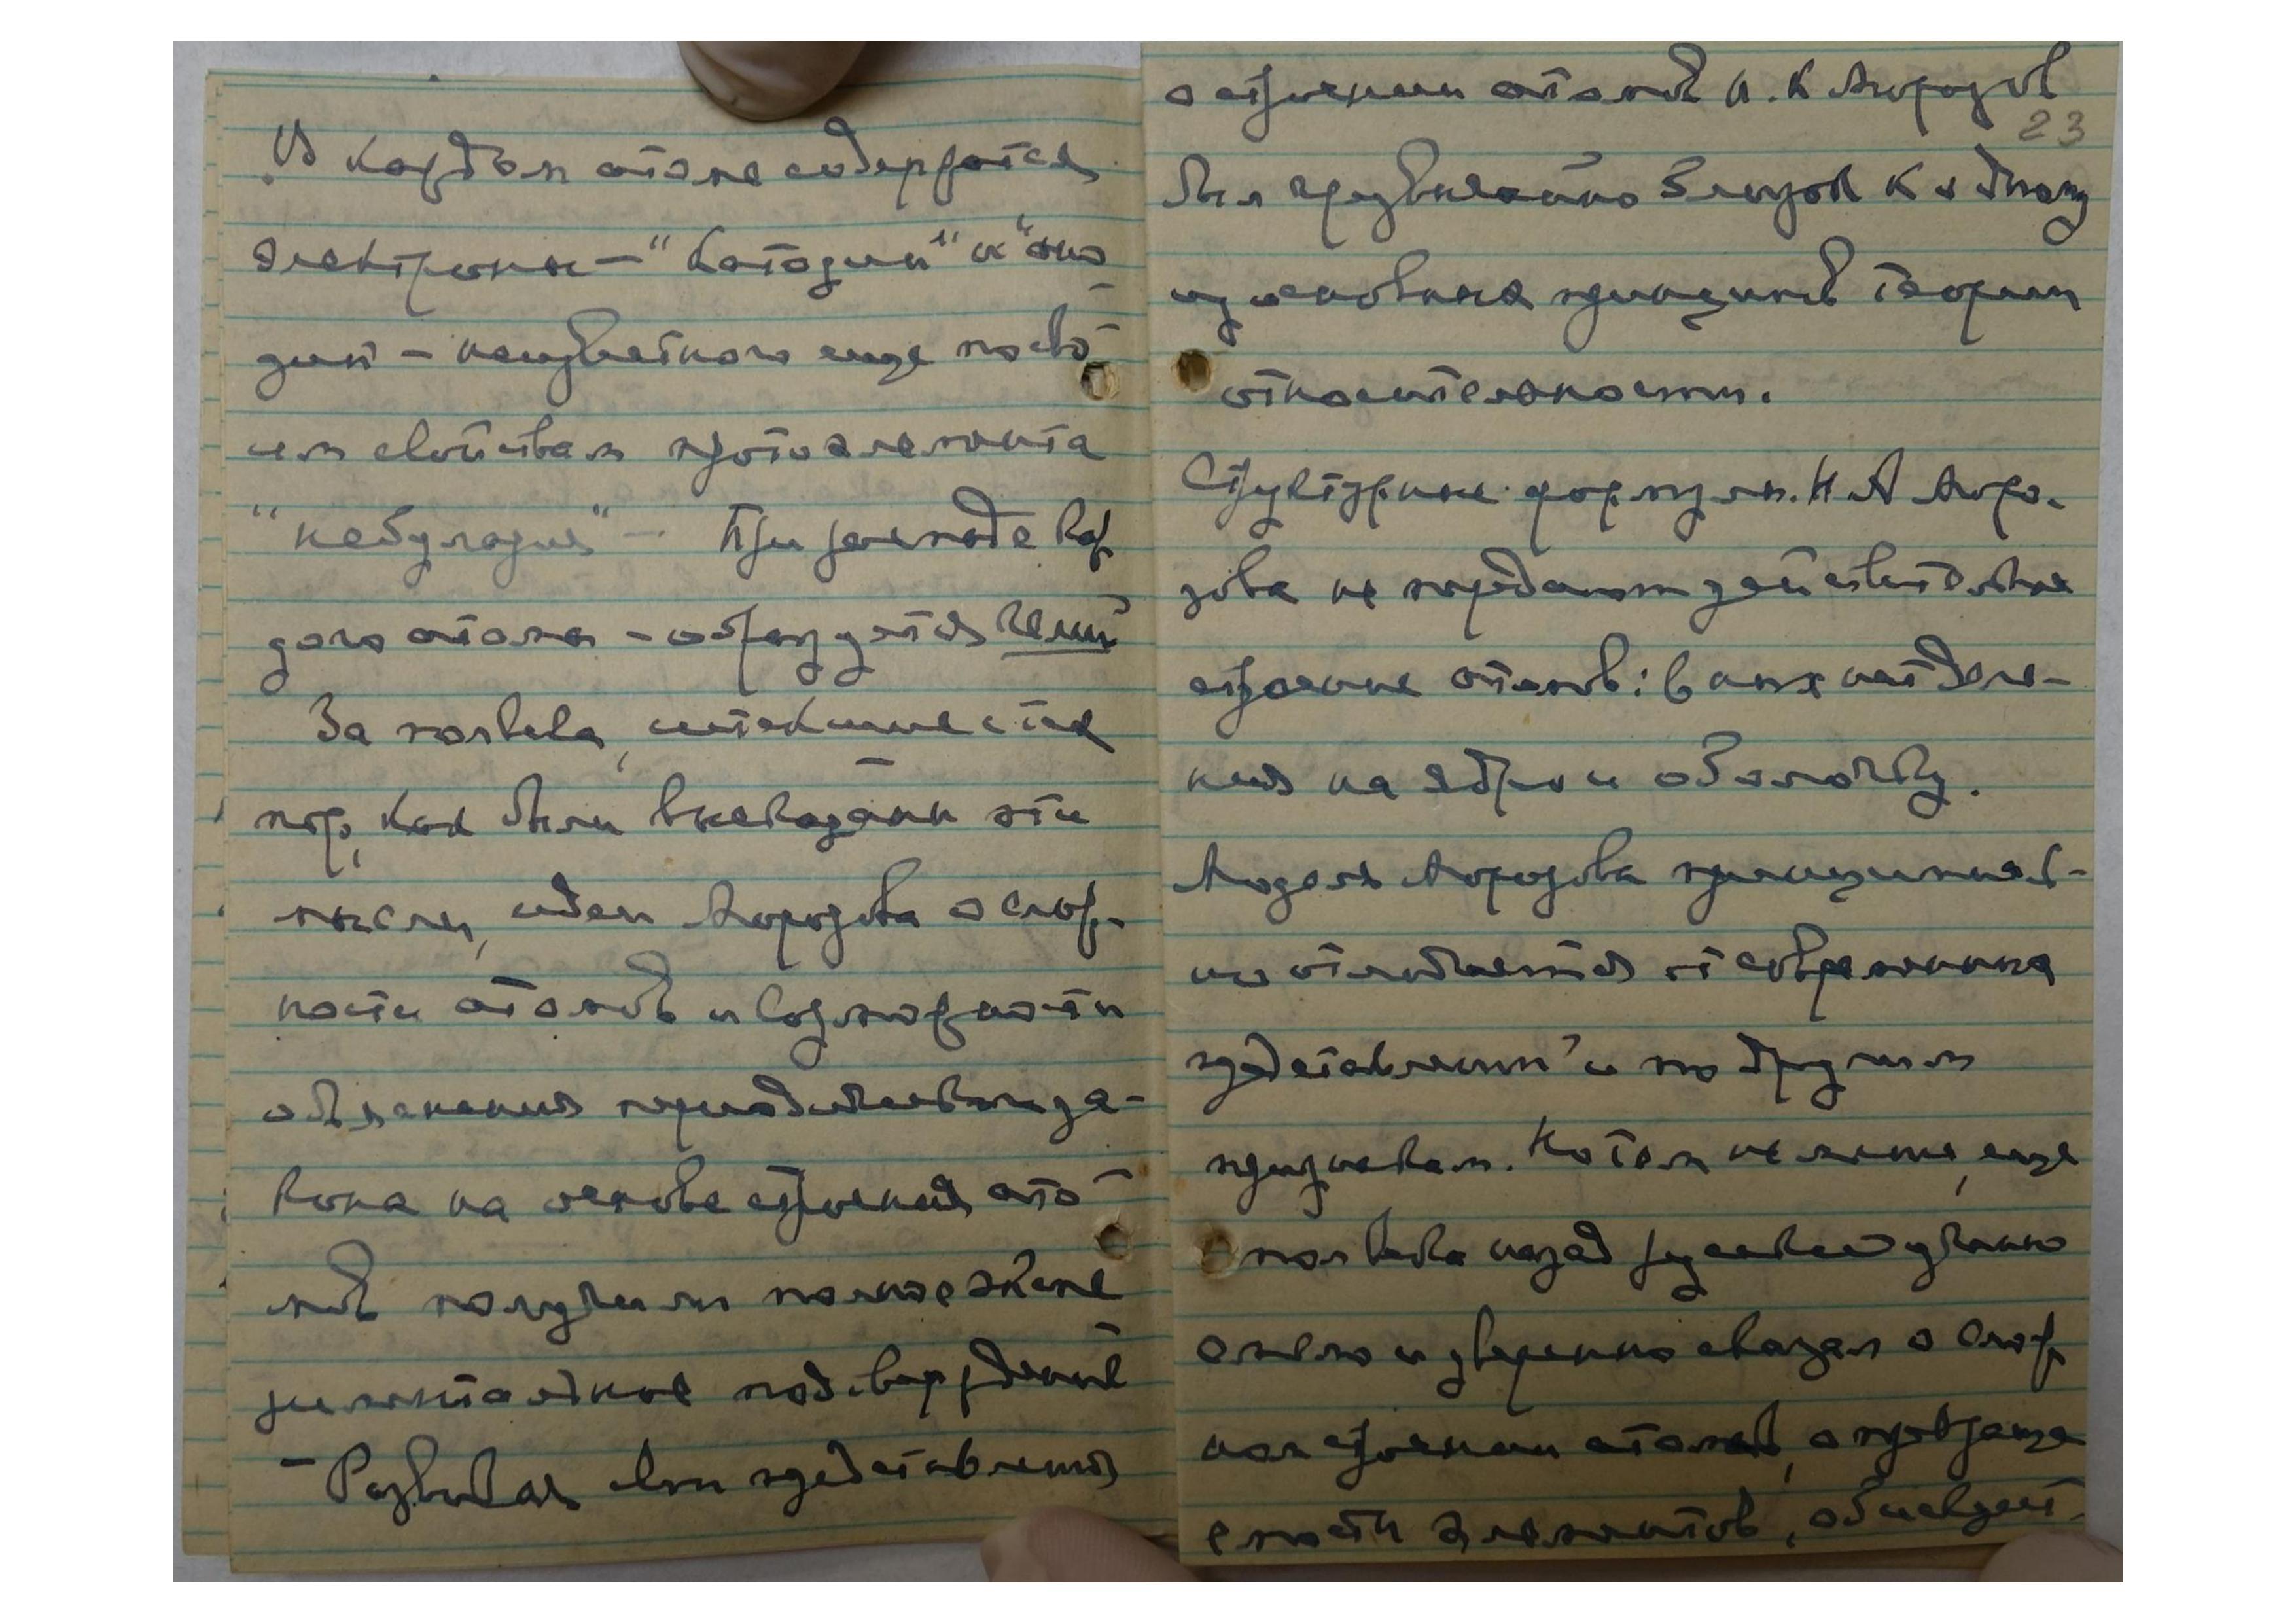 В каждом атоме содержатся
электроны – "катодий" и "ано
дий" – неизвестного еще по сво
им свойствам протоэлемента
"небулозия" – При распаде каж
дого атома – образуется гелий
За полвека, истекшие с тех
пор, как были высказаны эти
мысли, идеи Морозова о слож-
ности атомов и возможности
объяснения периодического за-
кона на основе строения ато
мов получили полное экспе
риментальное подтверждение
– Развивая свои представления
о строении атомов Н. А Морозов
23
был чрезвычайно близок к одному
из основных принципов теории
относительности.
Структурные формулы Н А Моро-
зова не передают действительное
строение атомов: в них нет деле-
ния на ядро и оболочку.
Модель Морозова принципиаль-
но отличается от современных
представлений и по другим
признакам. Но тем не менее, еще
полвека назад русский ученый
смело и уверенно сказал о слож
ном строении атомов, о превращае
емости элементов, об искусст